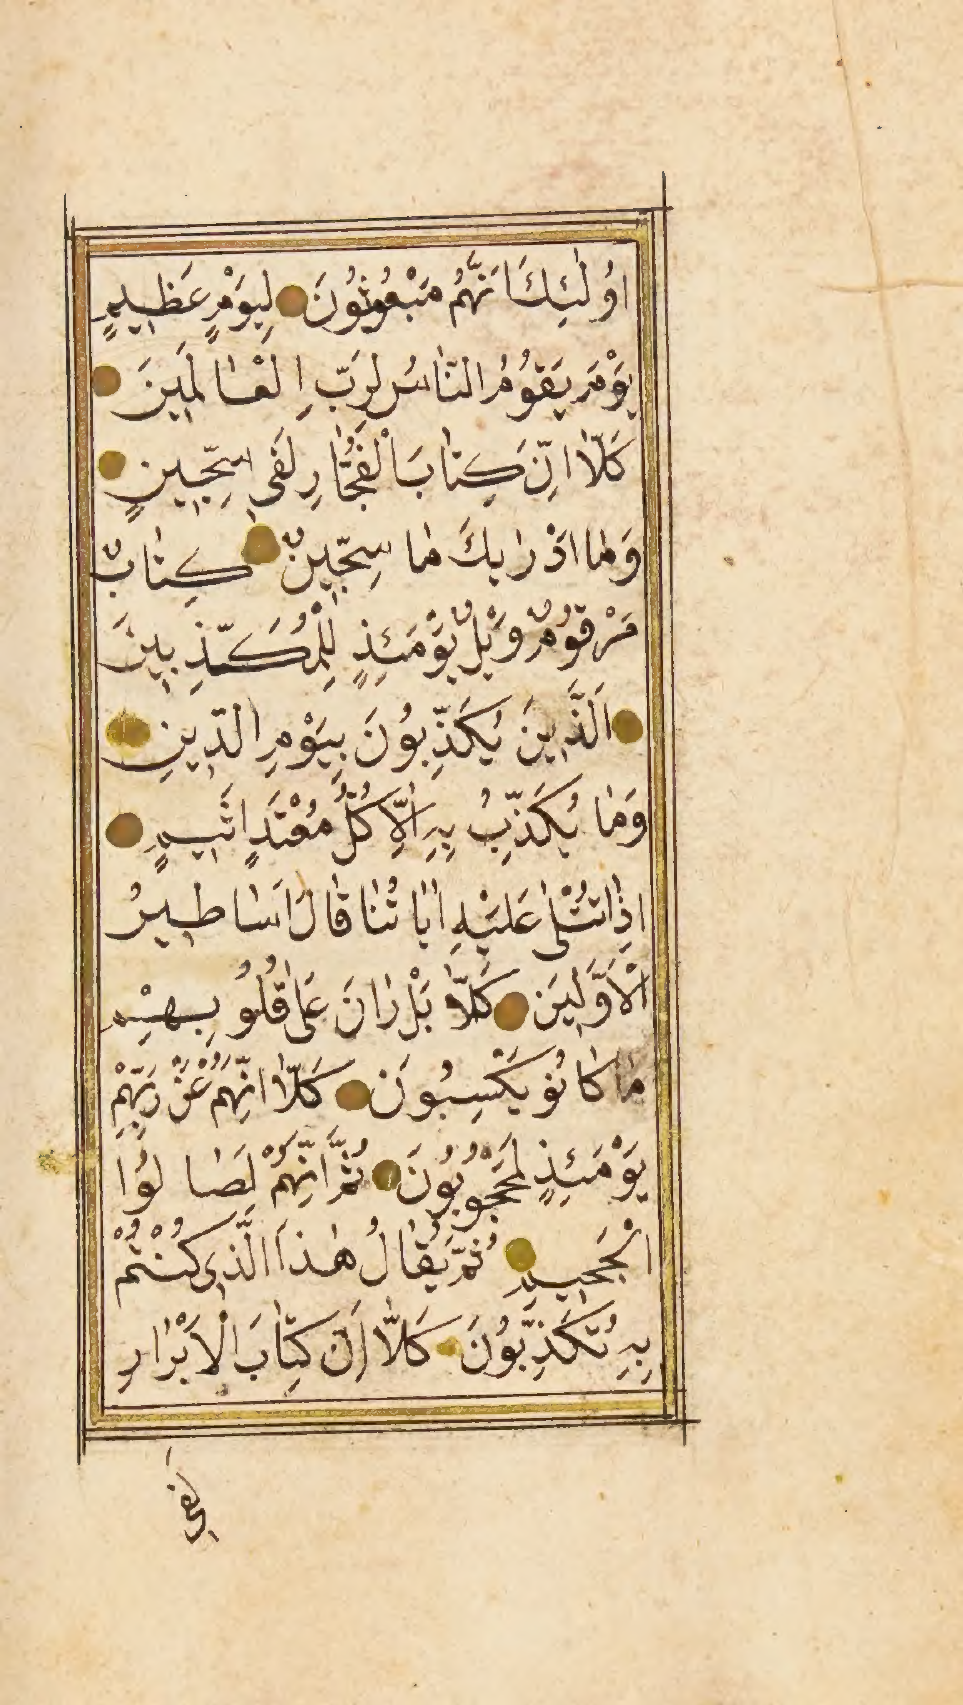 اُولٰئِكَ اَنَّهُمْ مَبْعُوثُونَ لِيَوْمٍ عَظِيمٍ
يَوْمَ يَقُومُ النَّاسُ لِرَبِّ الْعَالَمِينَ
كَلَّا اِنَّ كِتَابَ الْفُجَّارِ لَفِى سِجِّينٍ
وَمَا اَدْرٰيكَ مَا سِجِّينٌ كِتَابٌ
مَرْقُومٌ وَيْلٌ يَوْمَئِذٍ لِلْمُكَذِّبِينَ
اَلَّذِينَ يُكَذِّبُونَ بِيَوْمِ الدِّينِ
وَمَا يُكَذِّبُ بِهِ اِلَّا كُلُّ مُعْتَدٍ اَثِيمٍ
اِذَا تُتْلٰى عَلَيْهِ اٰيَاتُنَا قَالَ اَسَاطِيرُ
الْاَوَّلِينَ كَلَّا بَلْ رَانَ عَلٰى قُلُوبِهِمْ
مَا كَانُو يَكْسِبُونَ كَلَّا اِنَّهُمْ عَنْ رَبِّهِمْ
يَوْمَئِذٍ لَمَحْجُوبُونَ ثُمَّ اِنَّهُمْ لَصَالُوا
الْجَحِيمِ ثُمَّ يُقَالُ هٰذَا الَّذِى كُنْتُمْ
بِهِ تُكَذِّبُونَ كَلَّا اِنَّ كِتَابَ الْاَبْرَارِ
لَفِى